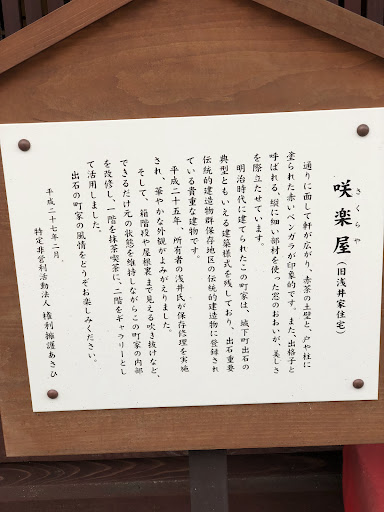 さくらや
咲楽屋(旧浅井家住宅)
通りに面して軒が広がり、赤茶の土壁と、戸や柱に
塗られた赤いベンガラが印象的です。また、出格子と
呼ばれる、縦に細い部材を使った窓のおおいが、美しさ
を際立たせています。
明治時代に建てられたこの町家は、城下町出石の
典型ともいえる建築様式を残しており、出石重要
伝統的建造物群保存地区の伝統的建造物に登録され
ている貴重な建物です。
平成二十五年、所有者の浅井氏が保存修理を実施
され、華やかな外観がよみがえりました。
そして、箱階段や屋根裏まで見える吹き抜けなど、
できるだけ元の状態を維持しながらこの町家の内部
を改修し、一階を抹茶喫茶に、二階をギャラリーとし
て活用しました。
出石の町家の風情をどうぞお楽しみください。
平成二十七年二月
特定非営利活動法人 権利擁護あさひ